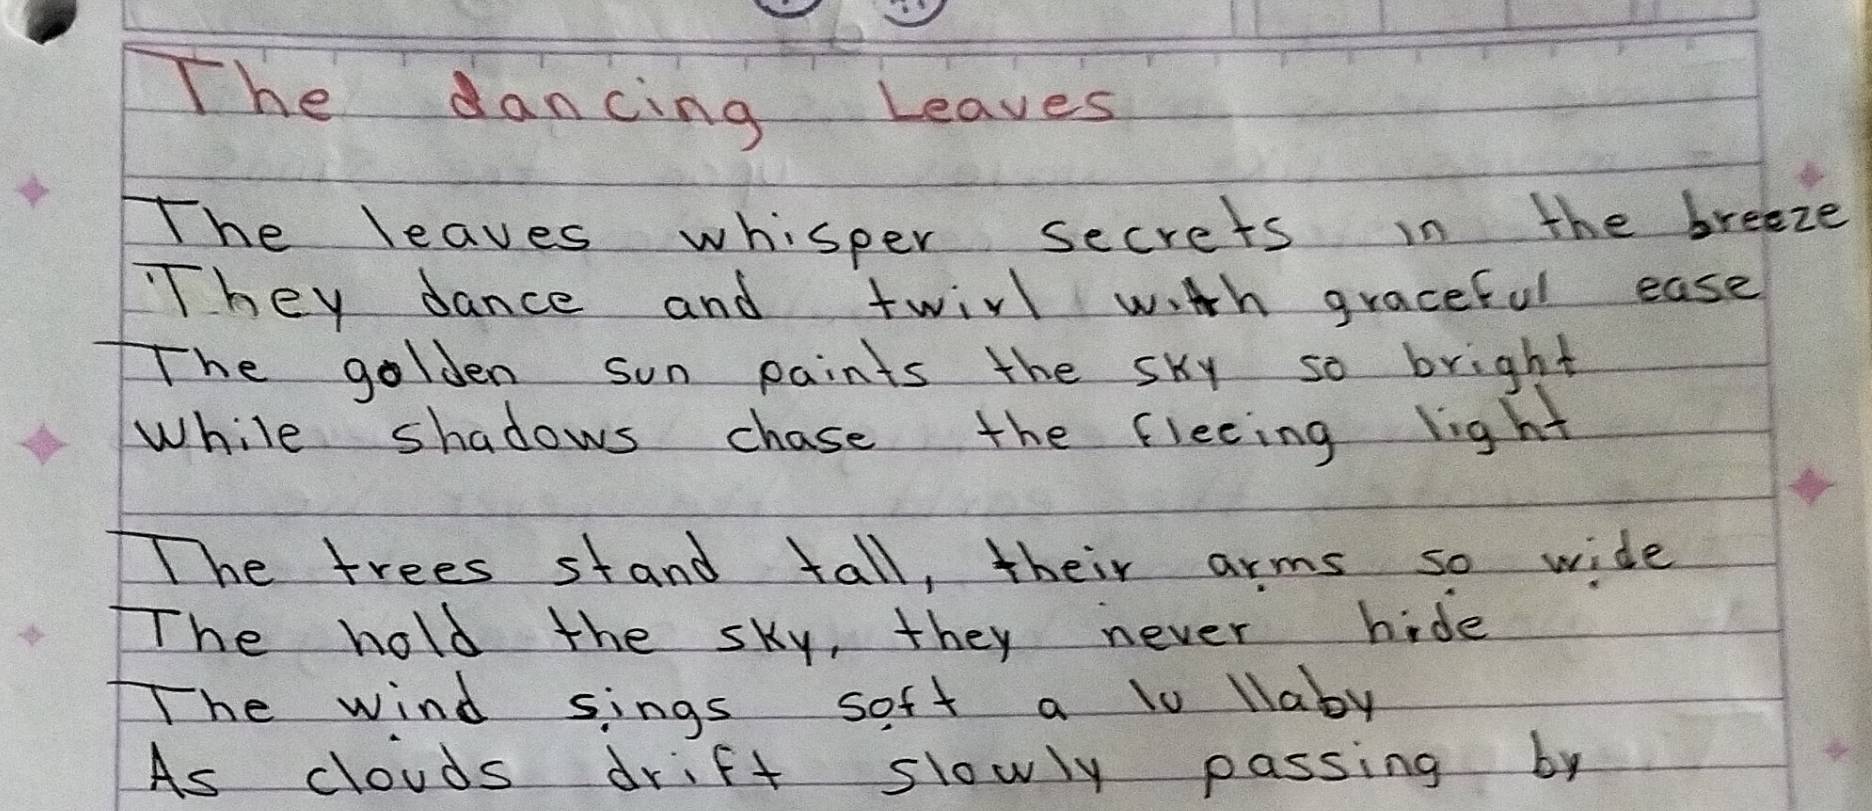 The dancing Leaves
The leaves whisper secrets in the breeze
They dance and twirl with graceful ease
The golden sun paints the sky so bright
While shadows chase the fleeing light
The trees stand tall, their arms so wide
The hold the sky, they never hide
The wind sings soft a lullaby
As clouds drift slowly passing by